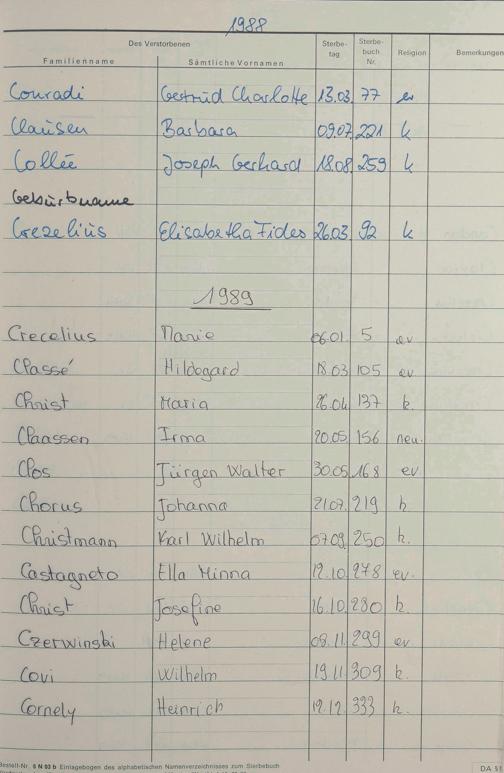 1988
Des Verstorbenen Sterbe- Sterbe- Religion Bemerkungen
Familienname Sämtliche Vornamen tag buch
Nr.
Conradi Gertrud Charlotte 13.03. 77 ev
Clausen Barbara 09.07. 221 k
Collée Joseph Gerhard 18.08 259 k
Geburtsname
Crezelius Elisabetha Fides 26.03. 92 k
1989
Crecelius Marie 06.01. 5 ev
Classé Hildegard 18.03 105 ev
Christ Maria 26.04 137 k.
Claassen Irma 20.05. 156 neu.
Clos Jürgen Walter 30.05 168 ev.
Chorus Johanna 21.07. 219 k.
Christmann Karl Wilhelm 07.09. 250 k.
Castagneto Ella Minna 12.10. 278 ev.
Christ Josefine 16.10. 280 k.
Czerwinski Helene 08.11. 299 ev
Covi Wilhelm 19.11. 309 k.
Cornely Heinrich 19.12. 333 k.
Bestell-Nr. 6 N 93 b Einlagebogen des alphabetischen Namenverzeichnisses zum Sterbebuch DA 51